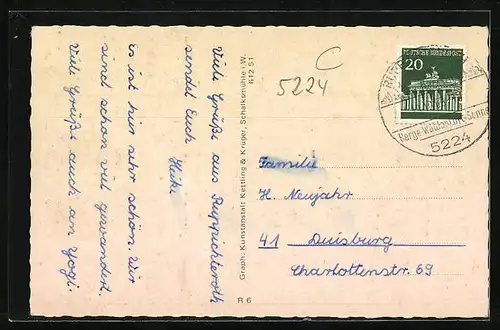 Viele Grüße aus Ruppichteroth
sendet Euch
Heike
Es ist hier sehr schön. Wir
sind schon viel gewandert.
Viele Grüße auch an Yogi.
Graph. Kunstanstalt Kettling & Krüger, Schalksmühle i. W.
612 51
R 6
C
5224
20
5224
Familie
H. Neujahr
41 Duisburg
Charlottenstr. 69